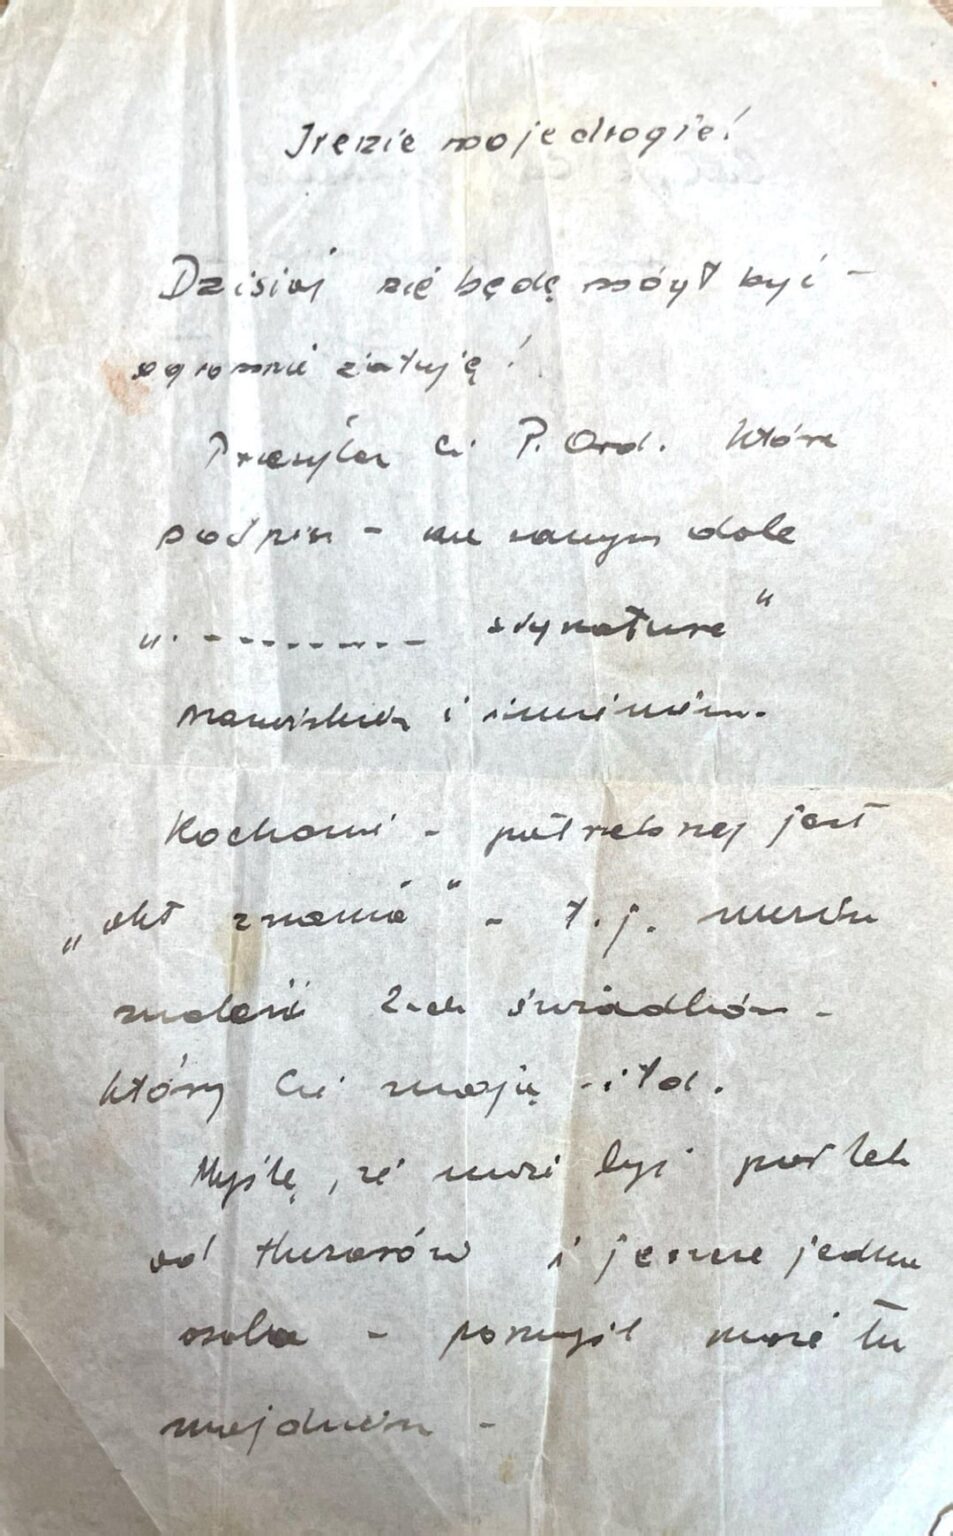 Irenie moje drogie!
Dzisiaj nie będę mógł być –
ogromnie żałuję!
Przesyłam Ci P. Ord. które
podpisz – na samym dole
„. – – – – – – – – – signature"
nazwiskiem i imieniem.
Kochanie – potrzebny jest
„akt znania" – t.j. musisz
znaleźć 2-ch świadków –
którzy Cię znają – itd.
Myślę, że może być
od i jeszcze jedna
osoba – pomyśl może tu
znajdziesz –